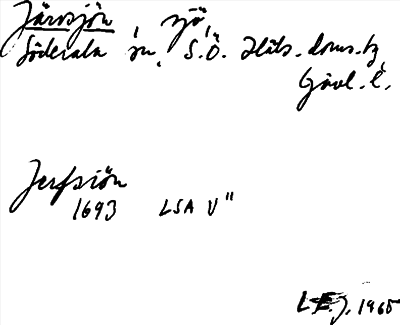 Järvsjön, sjö,
Söderala sn, S.Ö. Häls. doms. tg,
Gävl. l.
Jerfsiön
1693 LSA V"
L.E.J. 1965